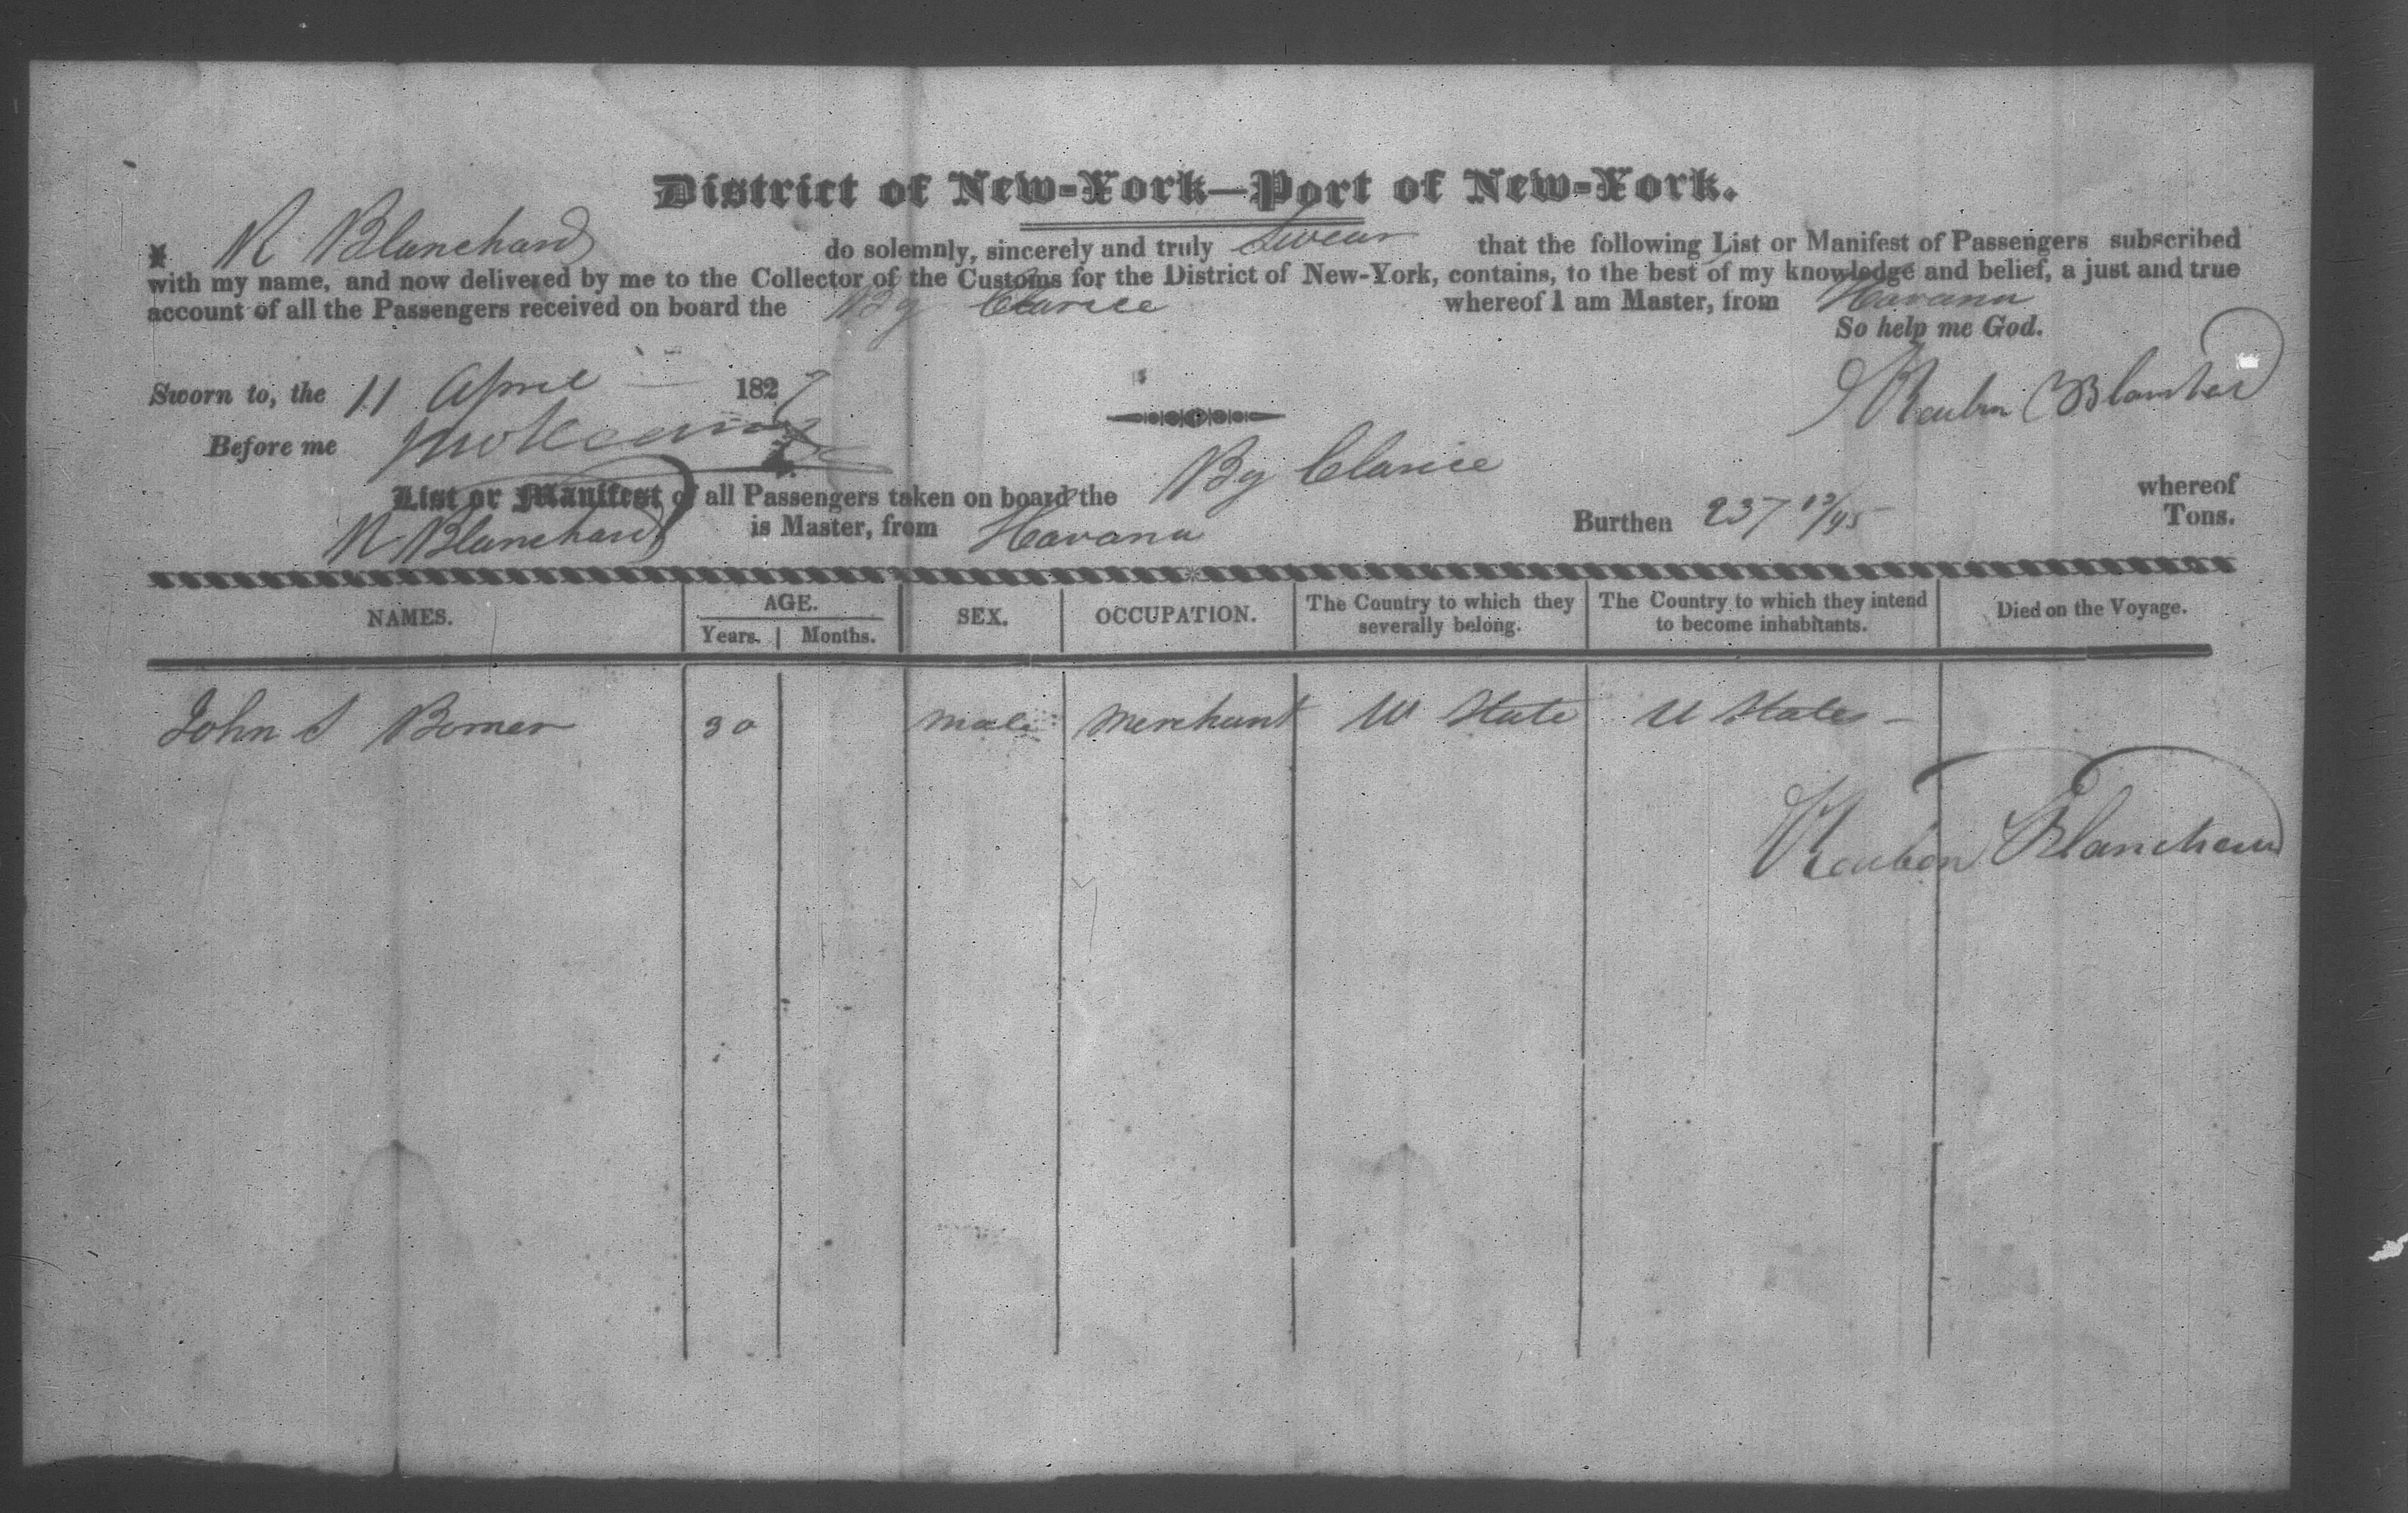 District of New-York—Port of New-York.
I R Blanchard do solemnly, sincerely and truly Swear that the following List or Manifest of Passengers subscribed
with my name, and now delivered by me to the Collector of the Customs for the District of New-York, contains, to the best of my knowledge and belief, a just and true
account of all the Passengers received on board the Bg Clarice whereof I am Master, from Havana
So help me God.
Sworn to, the 11 April 1827
Reuben Blanchard
Before me
List or Manifest of all Passengers taken on board the Bg Clarice whereof
R Blanchard is Master, from Havana Burthen 237 /95 Tons.
NAMES. AGE. SEX. OCCUPATION. The Country to which they severally belong. The Country to which they intend to become inhabitants. Died on the Voyage.
Years. Months.
John S 30 male Merchant U State U States
Reuben Blanchard